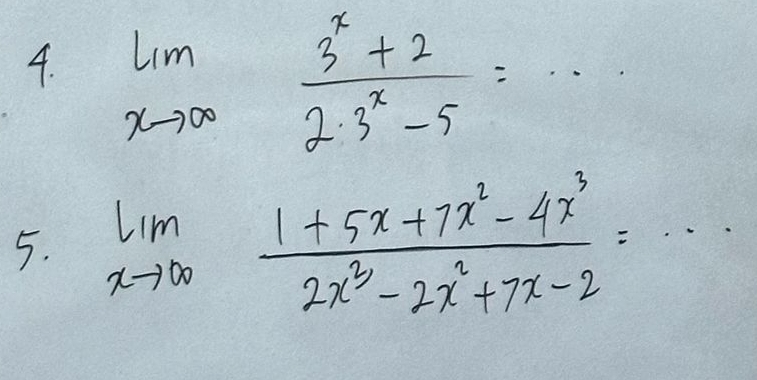 4. Lim x→∞ (3^x + 2)/(2·3^x − 5) = ....
5. Lim x→∞ (1 + 5x + 7x² − 4x³)/(2x³ − 2x² + 7x − 2) = ....